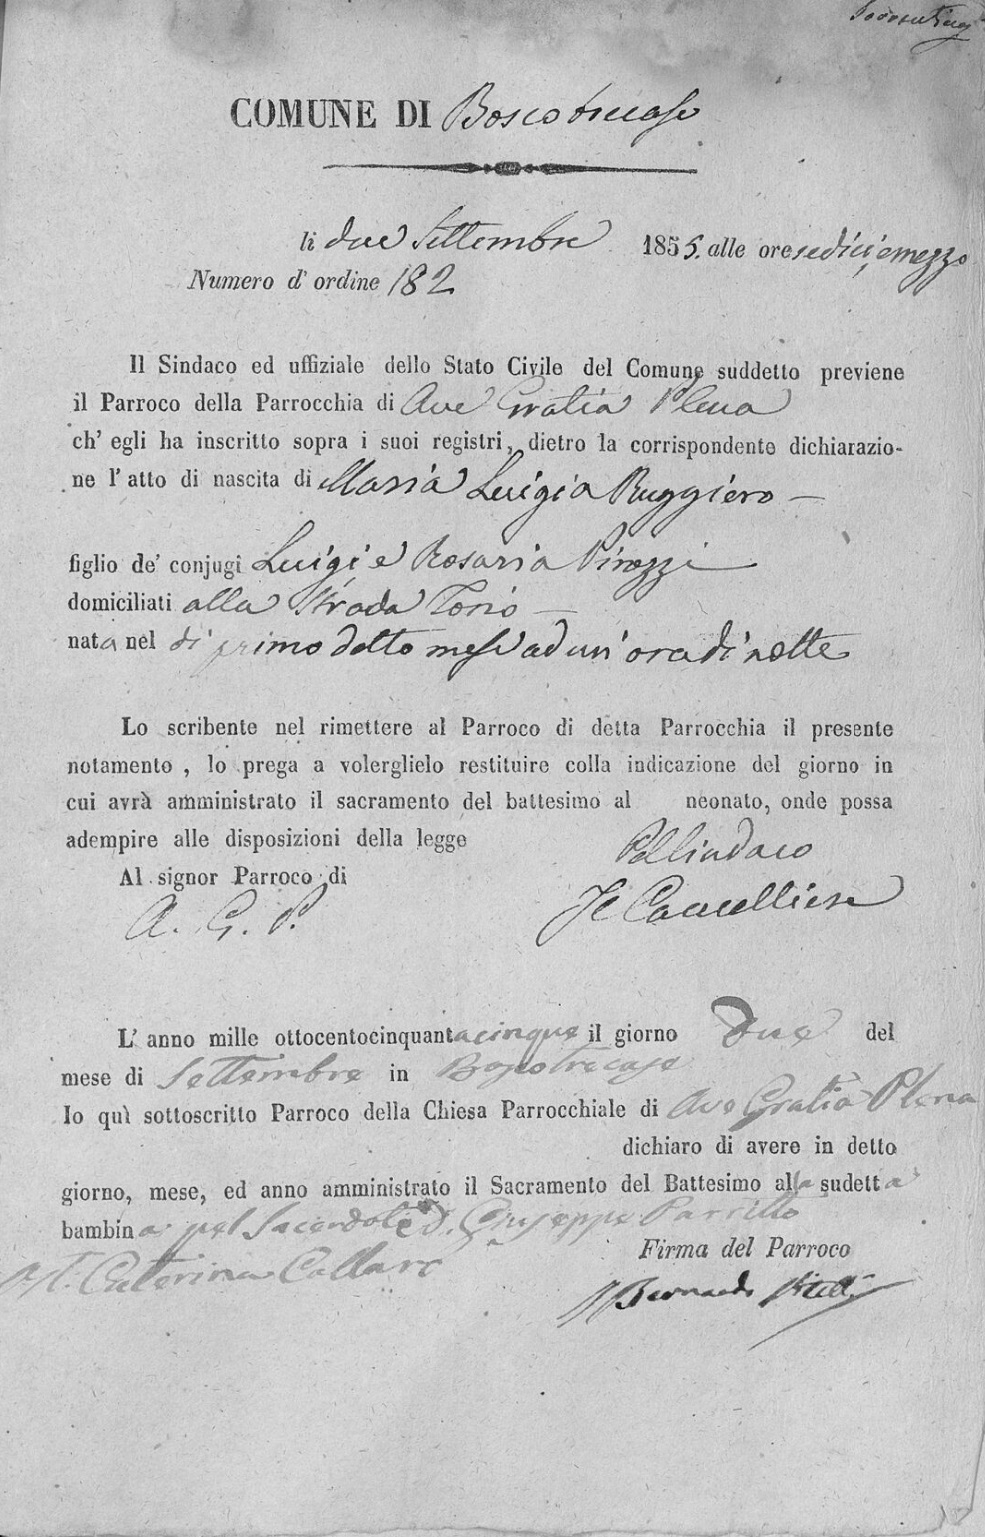 COMUNE DI Boscotrecase
li due Settembre 1855. alle ore sedici, e mezzo
Numero d' ordine 182
Il Sindaco ed uffiziale dello Stato Civile del Comune suddetto previene
il Parroco della Parrocchia di Ave Gratia Plena
ch' egli ha inscritto sopra i suoi registri, dietro la corrispondente dichiarazio-
ne l' atto di nascita di Maria Luigia Ruggiero —
figlio de' conjugi Luigi e Rosaria Pirozzi
domiciliati alla Strada Torio —
nata nel dì primo detto mese ad un' ora di notte
Lo scribente nel rimettere al Parroco di detta Parrocchia il presente
notamento , lo prega a volerglielo restituire colla indicazione del giorno in
cui avrà amministrato il sacramento del battesimo al neonato, onde possa
adempire alle disposizioni della legge
Pel Sindaco
Al signor Parroco di
Il Cancelliere
A. G. P.
L' anno mille ottocentocinquantacinque il giorno due del
mese di Settembre in Boscotrecase
Io quì sottoscritto Parroco della Chiesa Parrocchiale di Ave Gratia Plena
dichiaro di avere in detto
giorno, mese, ed anno amministrato il Sacramento del Battesimo alla sudetta
bambina pel Sacerdote D. Giuseppe Parrillo
Firma del Parroco
Caterina Collaro
Bernardo